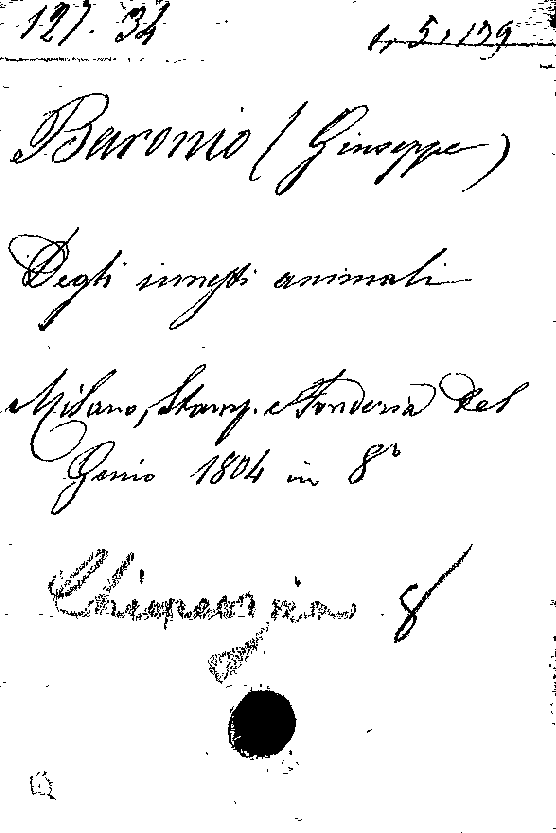 127. 34
1, 5, 139
Baronio (Giuseppe)
Degli innesti animali
Milano, Stamp. e Fonderia del
Genio 1804 in 8º
Chirurgia 8